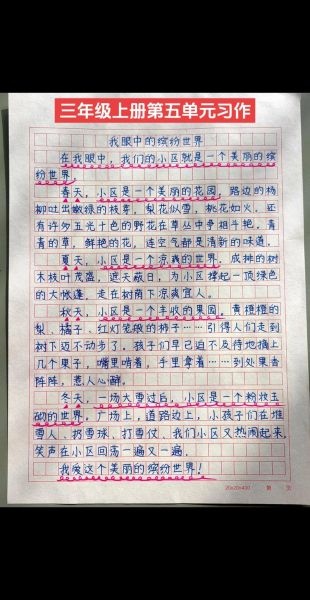 三年级上册第五单元习作
我眼中的缤纷世界
在我眼中，我们的小区就是一个美丽的缤
纷世界。
春天，小区是一个美丽的花园。路边的杨
柳吐出嫩绿的枝芽，梨花似雪，桃花如火，还
有许多五光十色的野花在草丛中争相斗艳，青
青的草，鲜艳的花，连空气都是清新的味道。
夏天，小区是一个凉爽的世界。成排的树
木枝叶茂盛，遮天蔽日，为小区撑起一顶绿色
的大帐篷，走在树荫下凉爽宜人。
秋天，小区是一个丰收的果园。黄橙橙的
梨、橘子、红灯笼般的柿子……引得人们走到
树下迈不动步了，孩子们早已迫不及待地摘上
几个果子，嘴里啃着，手里拿着……到处果香
阵阵，惹人心醉。
冬天，一场大雪过后，小区是一个粉妆玉
砌的世界。广场上，道路边上，小孩子们在堆
雪人、扔雪球、打雪仗，我们小区又热闹起来，
笑声在小区回荡一遍又一遍。
我爱这个美丽的缤纷世界！
20x20=400 第 页